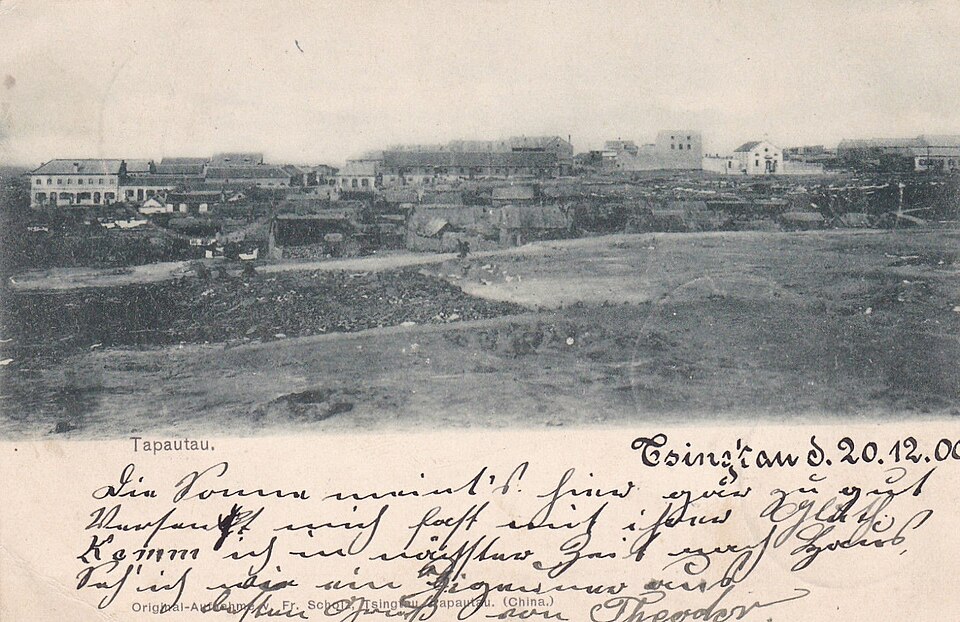 Tapautau.
Tsingtau d. 20.12.00
Die Sonne meint's hier gar zu gut
Versenkt mich fast mit ihrer Gluth.
Komm ich in nächster Zeit nach Haus,
Seh ich wie ein Zigeuner aus
Original-Aufnahme v. Fr. Scholz, Tsingtau Tapautau. (China.)
besten Gruß von Theodor